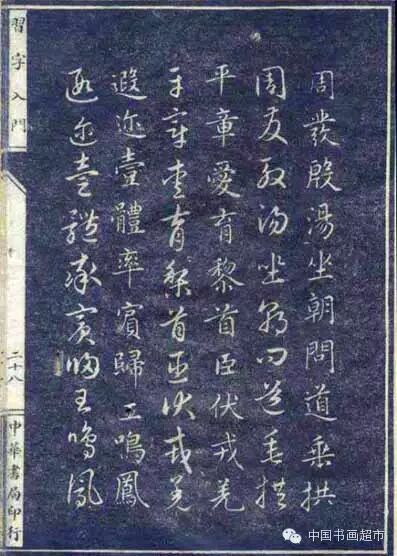 周發殷湯坐朝問道垂拱
周發殷湯坐朝問道垂拱
平章愛育黎首臣伏戎羌
平章愛育黎首臣伏戎羌
遐迩壹體率賓歸王鳴鳳
遐迩壹體率賓歸王鳴鳳
習字入門
二十八
中華書局印行
中国书画超市